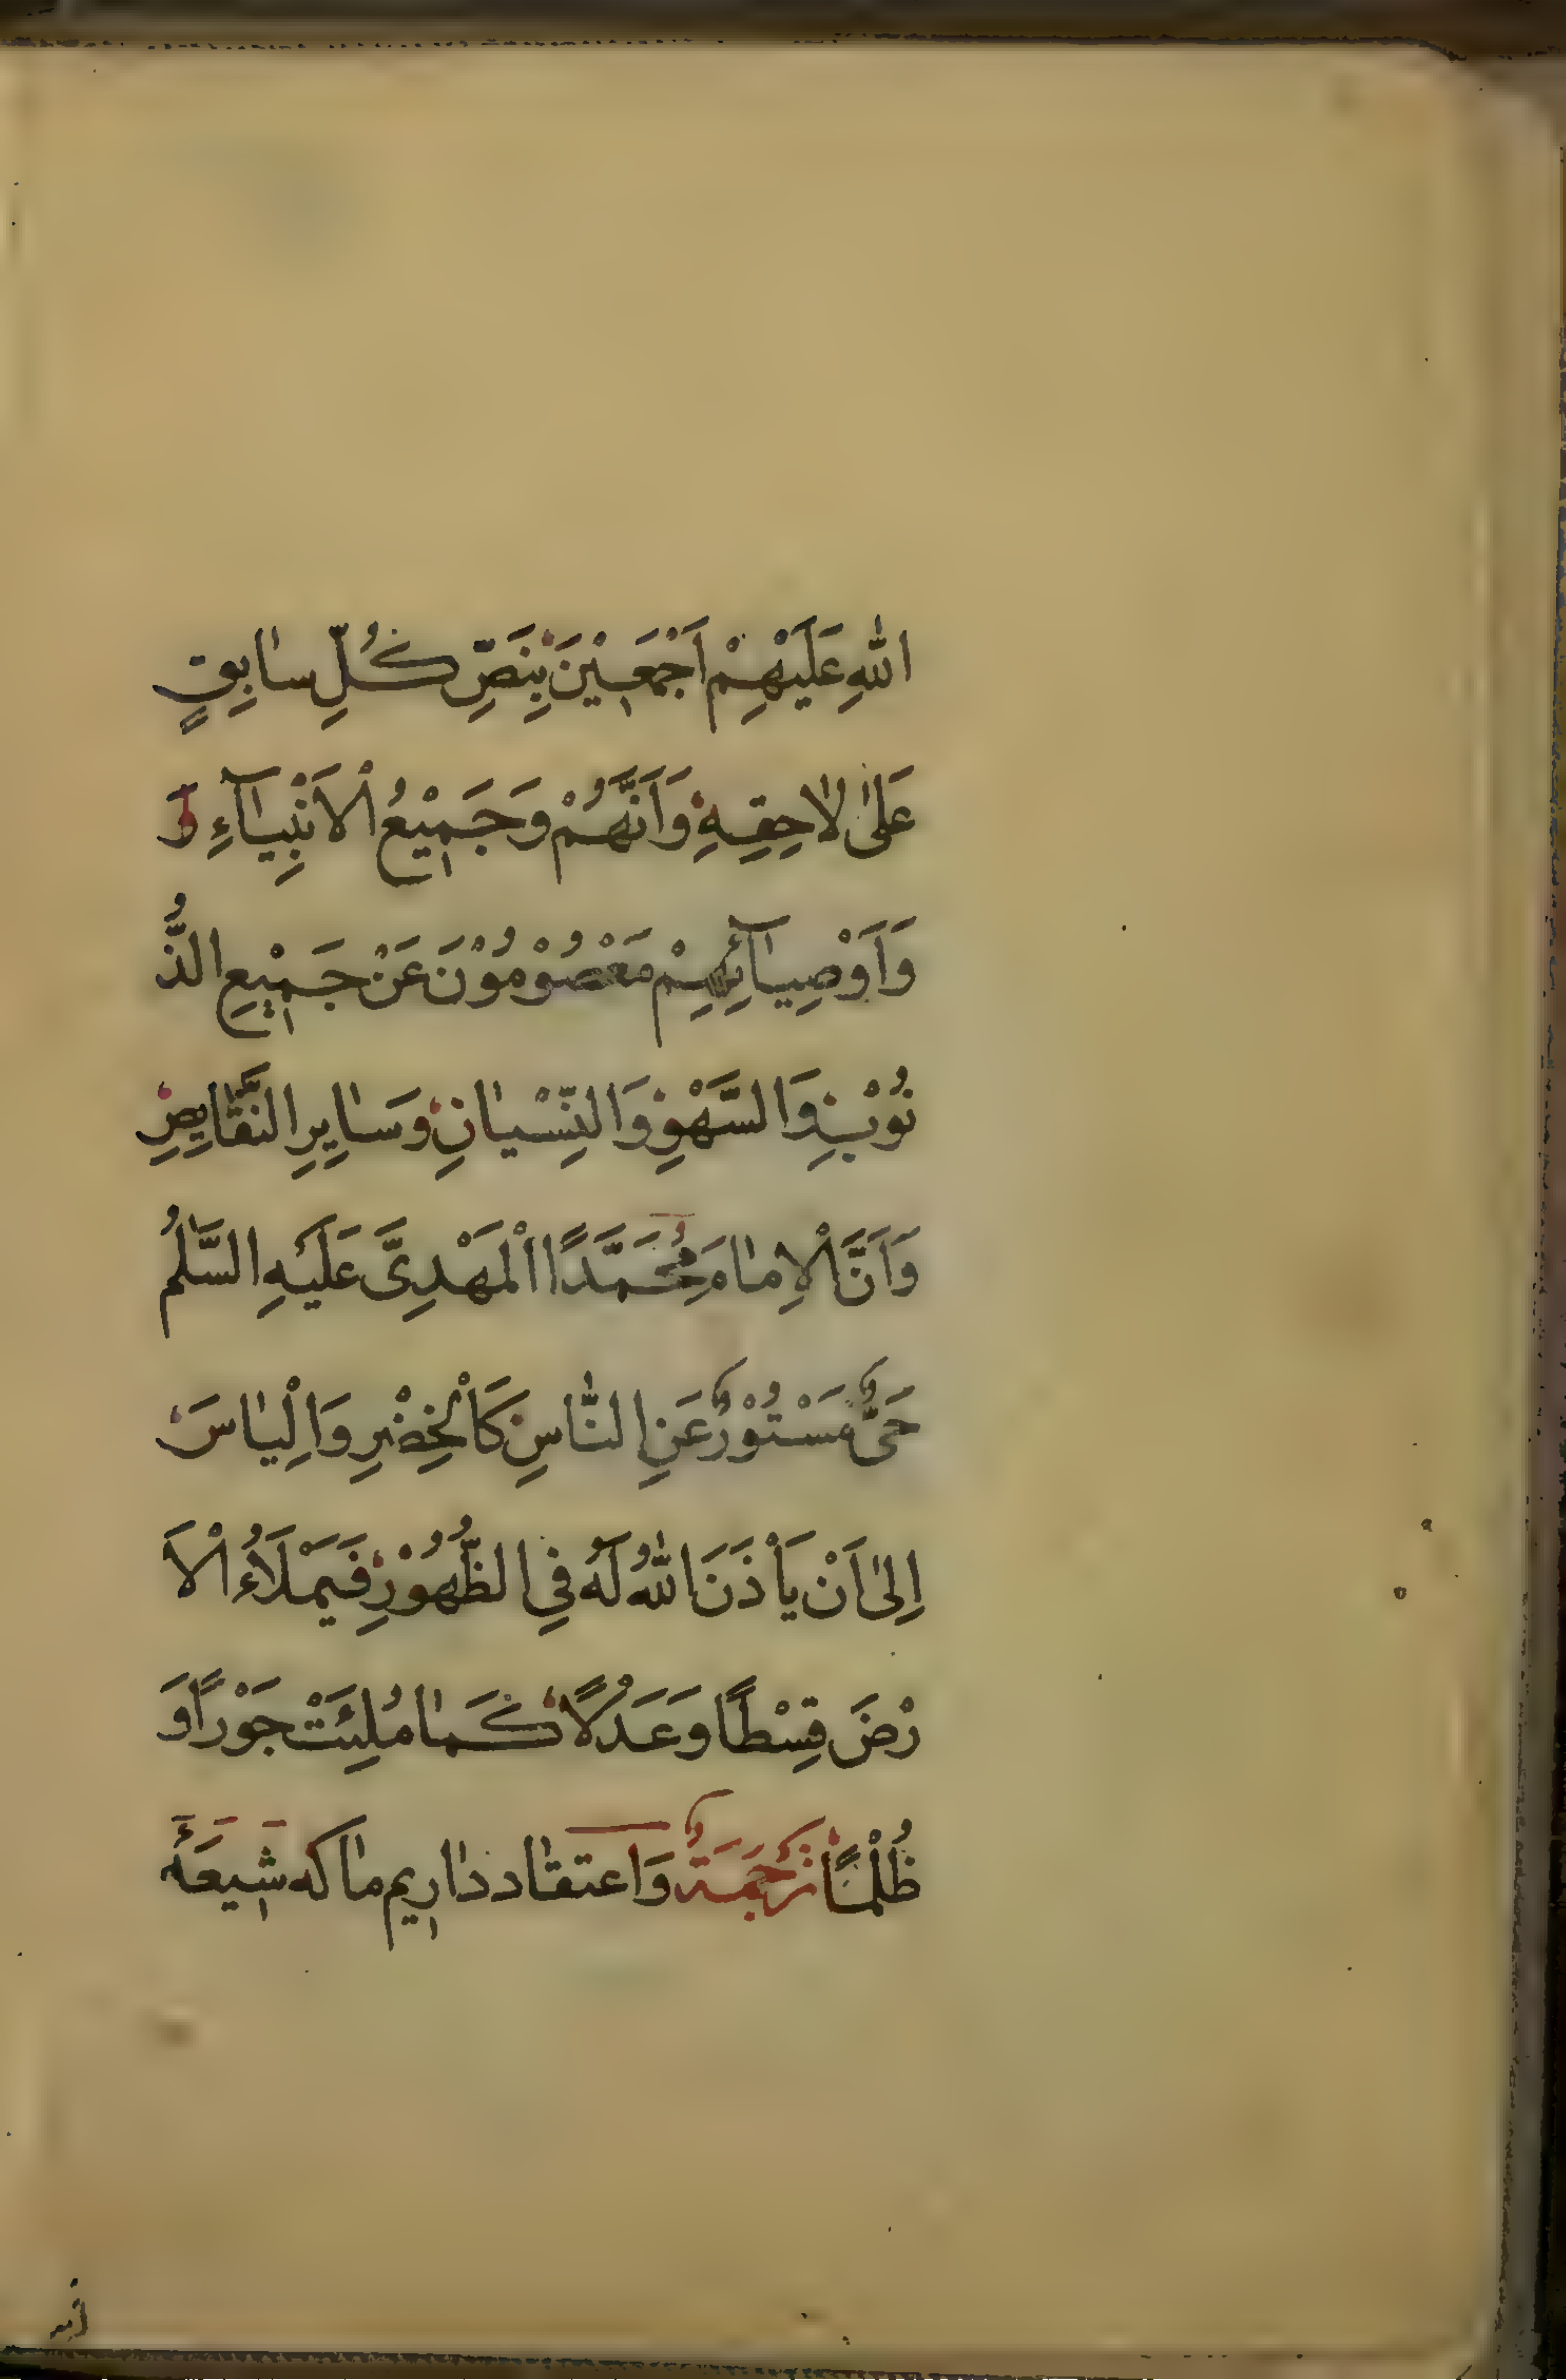 اللّٰهِ عَلَيْهِمْ اَجْمَعِيْنَ بِنَصِّ كُلِّ سٰابِقٍ
عَلىٰ لاٰحِقِهِ وَاَنَّهُمْ وَجَمِيْعُ الْاَنْبِيٰآءِ وَ
وَاَوْصِيٰآئِهِمْ مَعْصُوْمُوْنَ عَنْ جَمِيْعِ الذُّ
نُوْبِ وَالسَّهْوِ وَالنِّسْيٰانِ وَسٰايِرِ النَّقٰايِصِ
وَاَنَّ الْاِمٰامَ مُحَمَّدًا الْمَهْدِىَّ عَلَيْهِ السَّلٰمُ
حَىٌّ مَسْتُوْرٌ عَنِ النّٰاسِ كَالْخِضْرِ وَاِلْيٰاسَ
اِلىٰ اَنْ يَأْذَنَ اللّٰهُ لَهُ فِى الظُّهُوْرِ فَيَمْلَاُءُ الْاَ
رْضَ قِسْطًا وَعَدْلًا كَمٰا مُلِئَتْ جَوْرًا وَ
ظُلْمًا تَرْجَمَةٌ وَاعتقٰاد دٰارِيم مٰا كه شِيعَهٔ